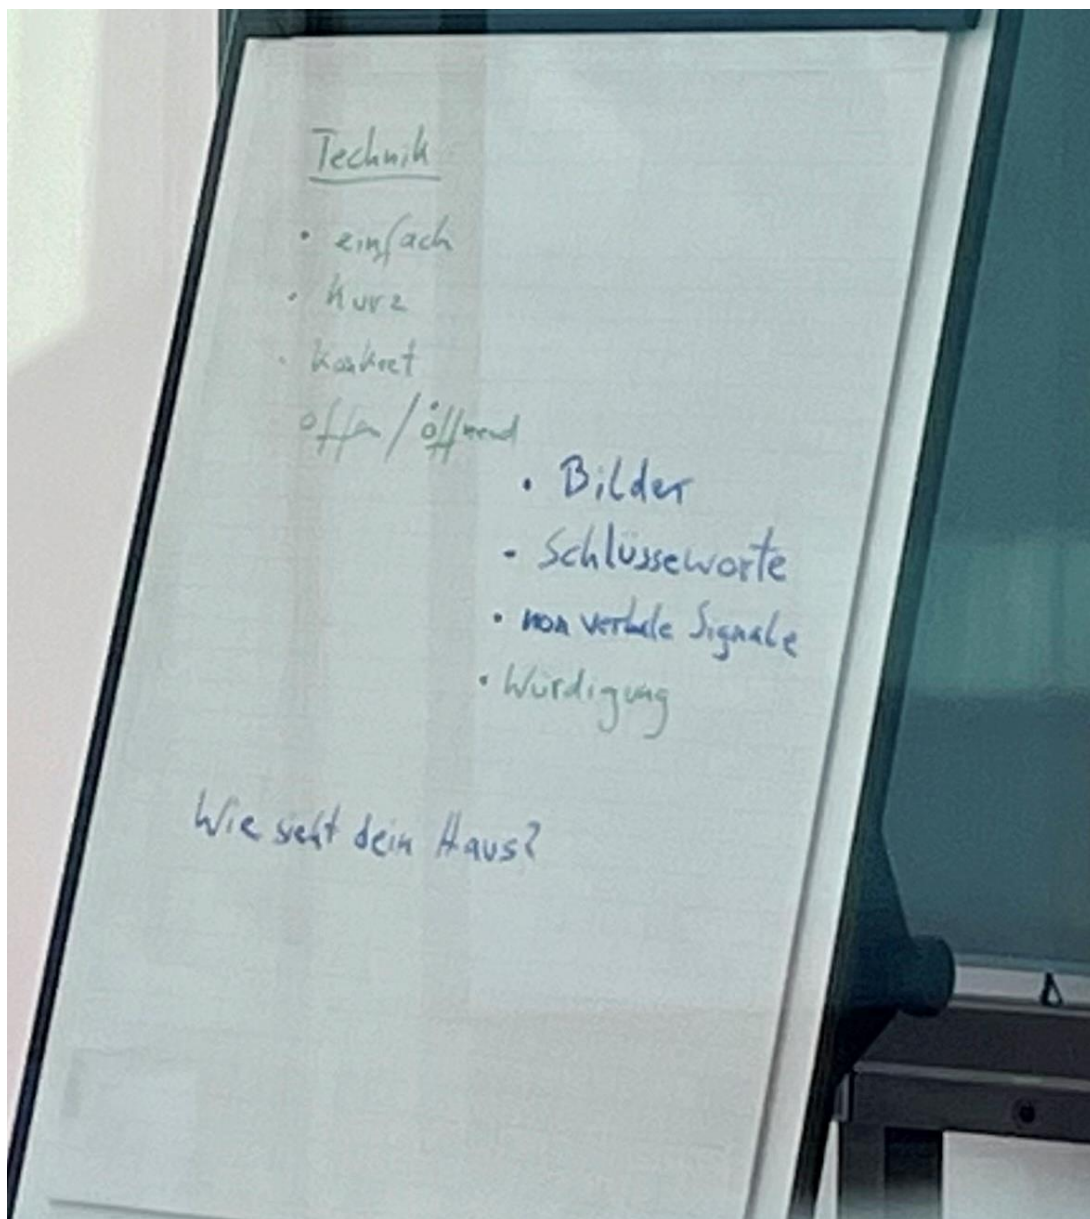 Technik
• einfach
• kurz
• konkret
offen / öffnend
• Bilder
- Schlüsseworte
• non verbale Signale
• Würdigung
Wie sieht dein Haus?